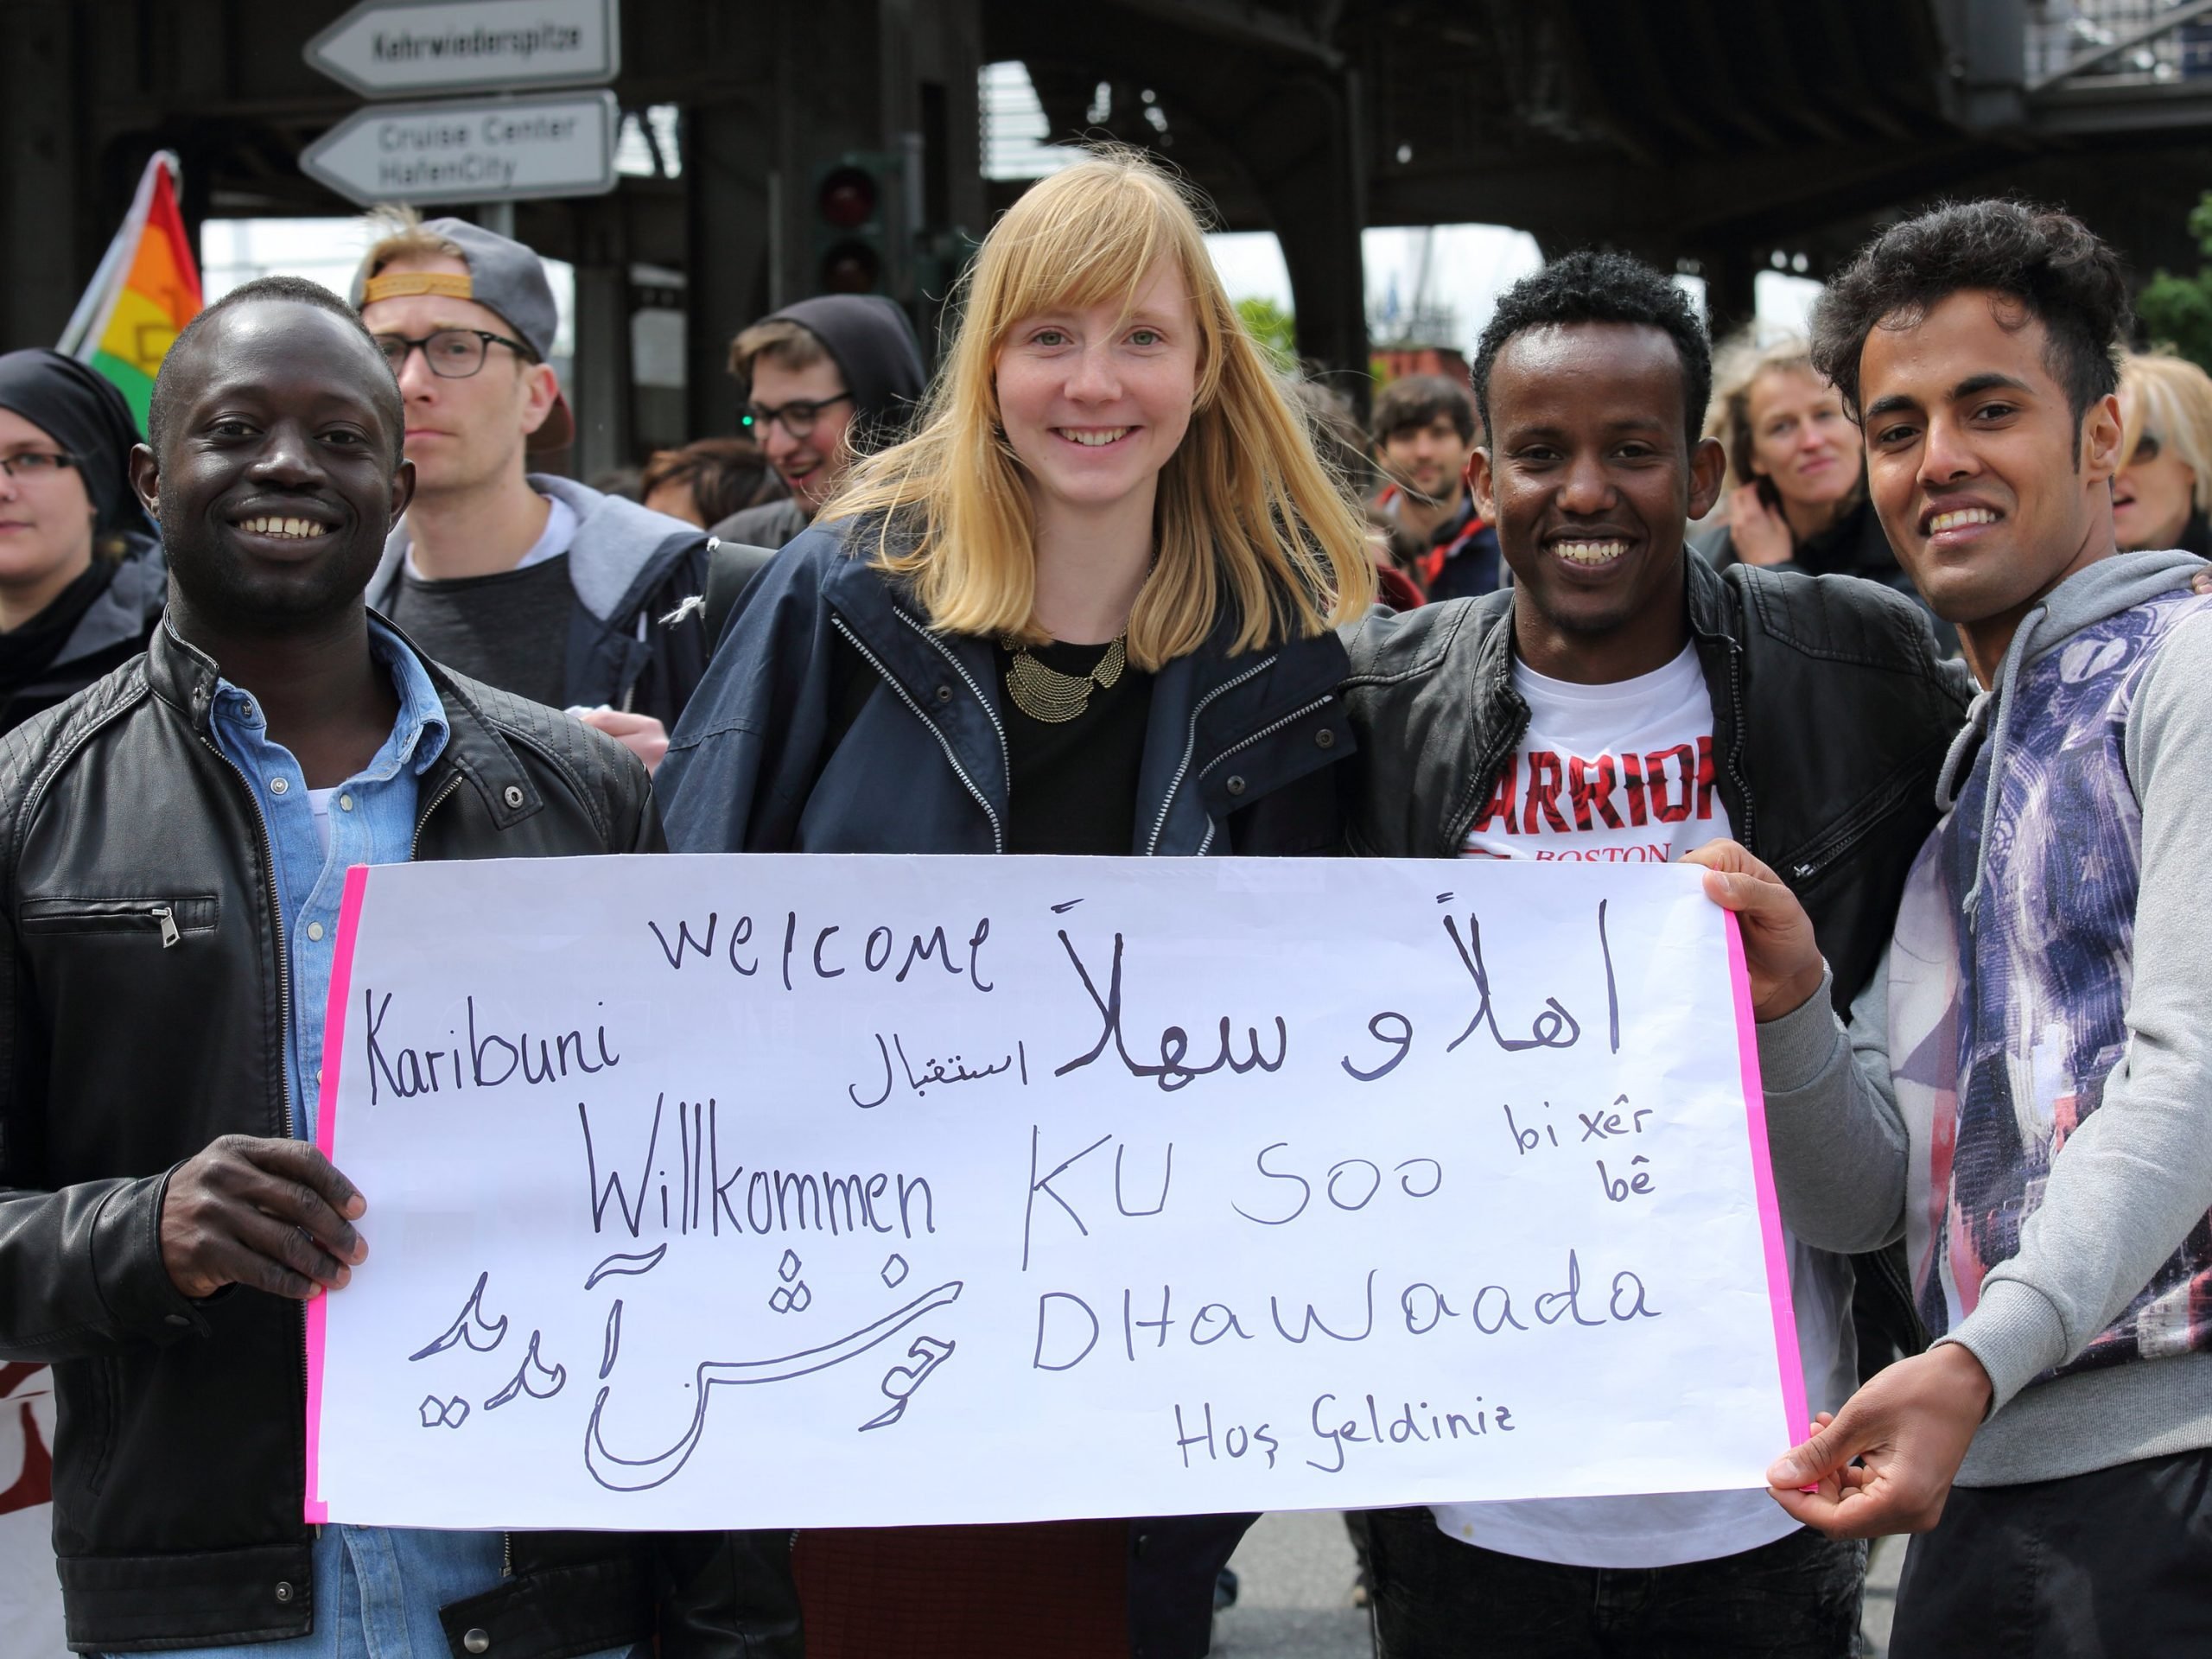 Kehrwiederspitze
Cruise Center
HafenCity
ARRIOR
BOSTON
welcome
اهلاً و سهلاً
Karibuni
استقبال
Willkommen
KU SOO
DHaWaada
bi xêr
bê
خوش آمدید
Hoş Geldiniz